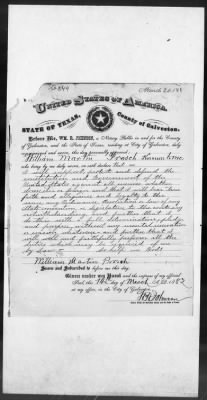 March 20, 188
UNITED STATES OF AMERICA.
STATE OF TEXAS, County of Galveston.
Before Me, WM. R. JOHNSON, a Notary Public in and for the County
of Galveston, and the State of Texas, residing at City of Galveston, duly
commissioned and sworn, this day personally appeared
William Martin
who being by me duly sworn, on oath declare that
I will support, protect and defend the
Constitution and Government of the
United States against all enemies whether
domestic or foreign and that I will bear true
faith and allegiance and loyalty to the
same any ordinance resolution or law of any
State Convention or Legislature to the contrary
notwithstanding and further that I
do this with a full determination pledge
and purpose without any mental reservation
or evasion whatsoever and further that I
will well and faithfully perform all the
duties which may be required of me
by law So help me God
William Martin
Sworn and Subscribed to before me this day.
Given under my Hand and the impress of my official
Seal, this day of March A.D. 1882
at my office, in the City of Galveston.